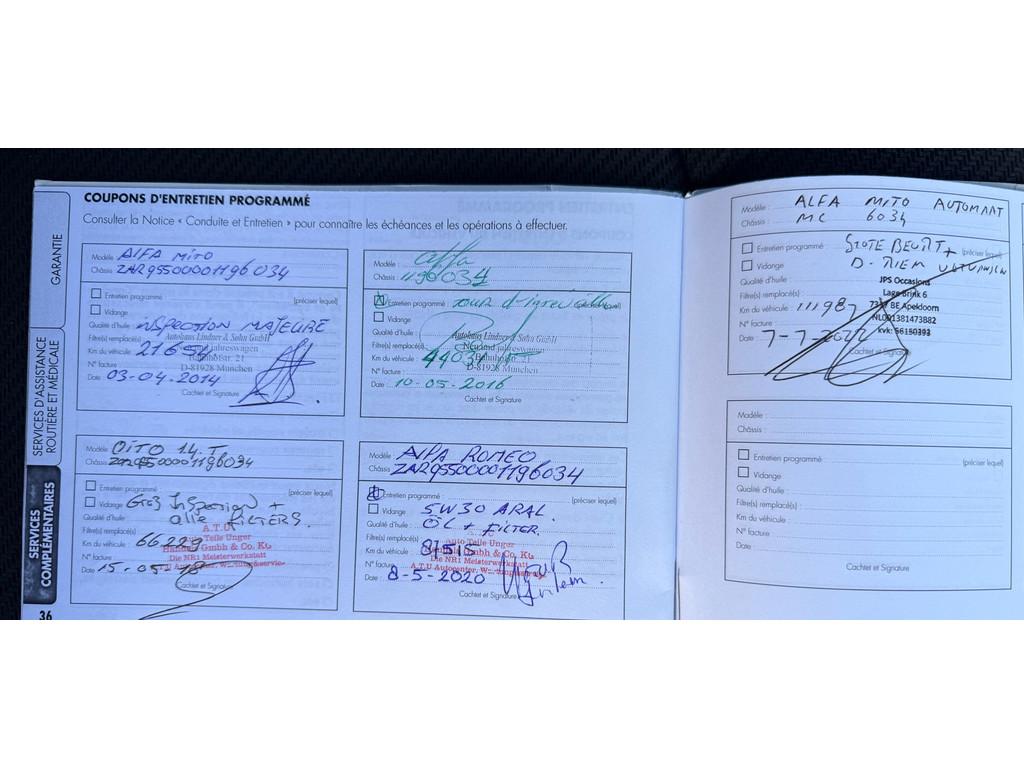 COUPONS D'ENTRETIEN PROGRAMMÉ
Consulter la Notice « Conduite et Entretien » pour connaître les échéances et les opérations à effectuer.
GARANTIE
SERVICES D'ASSISTANCE
ROUTIÈRE ET MÉDICALE
SERVICES
COMPLÉMENTAIRES
36
Modèle : ALFA MITO
Châssis : ZAR95500001196034
Entretien programmé :
(préciser lequel)
Vidange
Qualité d'huile : INSPECTION MAJEURE
Autohaus Lindner & Sohn GmbH
Filtre(s) remplacé(s)
Jahreswagen
Km du véhicule :
Bahnhofstr. 21
N° facture
D-81928 Munchen
Date : 03-04-2014
Cachtet et Signature
Modèle : Alfa
Châssis : 1196034
Entretien programmé : (préciser lequel)
Vidange
Qualité d'huile :
Autohaus Lindner & Sohn GmbH
Filtre(s) remplacé(s)
Jahreswagen
Km du véhicule :
Bahnhofstr. 21
N° facture
D-81928 Munchen
Date : 10-05-2016
Cachtet et Signature
Modèle : MITO 1.4. T
Châssis : ZAR95500001196034
Entretien programmé :
(préciser lequel)
Vidange
Qualité d'huile : alle FILTERS.
A.T.U
Filtre(s) remplacé(s)
Auto Teile Unger
Km du véhicule : 66229
Gmbh & Co. KG
N° facture
Die NR1 Meisterwerkstatt
Date : 15-05-
Cachtet et Signature
Modèle : AlPA ROMEO
Châssis : ZAR95500001196034
Entretien programmé :
(préciser lequel)
Vidange 5W30 ARAL.
Qualité d'huile : ÖL + FILTER.
Filtre(s) remplacé(s)
Auto Teile Unger
Km du véhicule :
Gmbh & Co. KG
N° facture
Die NR1 Meisterwerkstatt
Date : 8-5-2020
A.T.U Autocenter,
Cachtet et Signature
Modèle : ALFA MITO AUTOMAAT
Châssis : MC 6034
Entretien programmé : GROTE BEURT +
(préciser lequel)
Vidange D-RIEM
Qualité d'huile :
JPS Occasions
Filtre(s) remplacé(s)
Lage Brink 6
Km du véhicule : 111987
BE Apeldoorn
N° facture
NL001381473882
Date : 7-7-2022
kvk: 56150393
Cachtet et Signature
Modèle :
Châssis :
Entretien programmé :
(préciser lequel)
Vidange
Qualité d'huile :
Filtre(s) remplacé(s)
Km du véhicule :
N° facture
Date
Cachtet et Signature